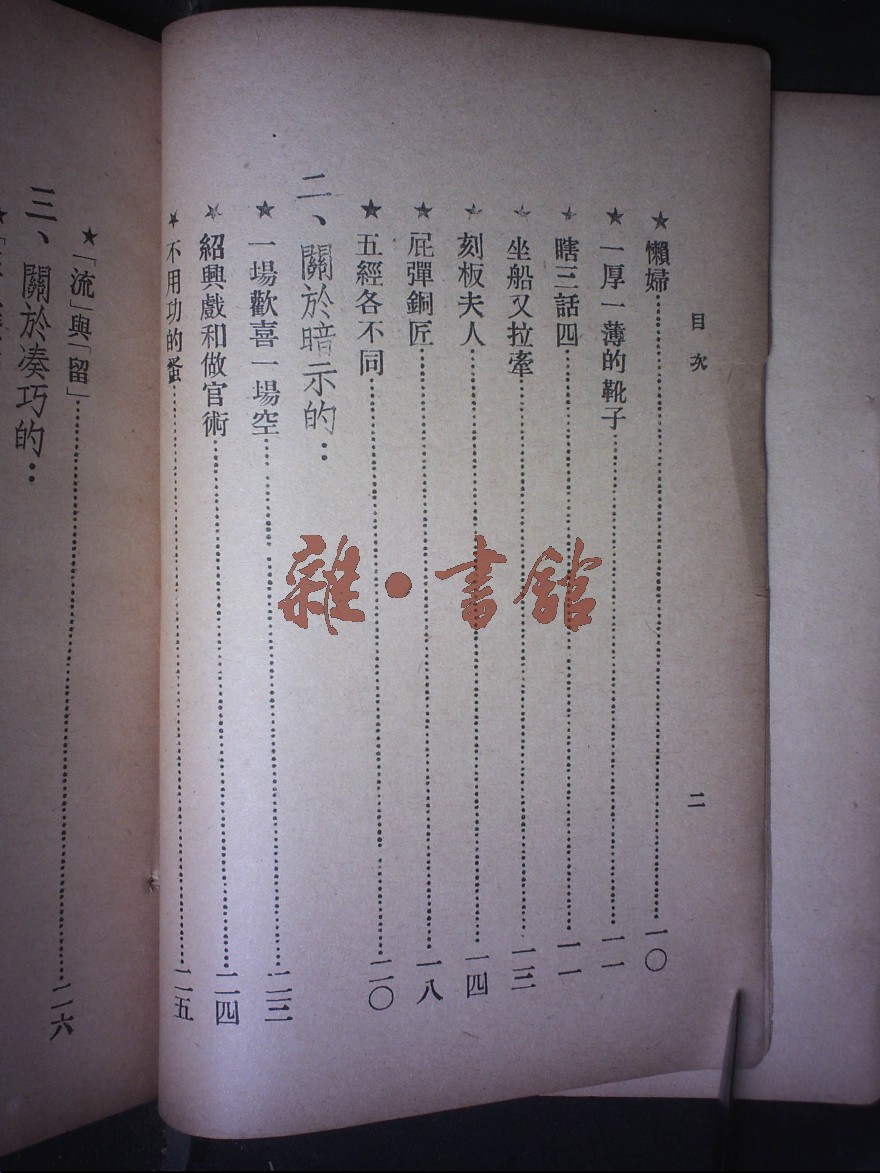 目次
二
★懶婦……一〇
★一厚一薄的靴子……一一
★瞎三話四……一一
★坐船又拉牽……一三
★刻板夫人……一四
★屁彈銅匠……一八
★五經各不同……二〇
二、關於暗示的：
★一場歡喜一場空……二三
★紹興戲和做官術……二四
★不用功的蚤……二五
★「流」與「留」……二六
三、關於凑巧的：
雜•書舘